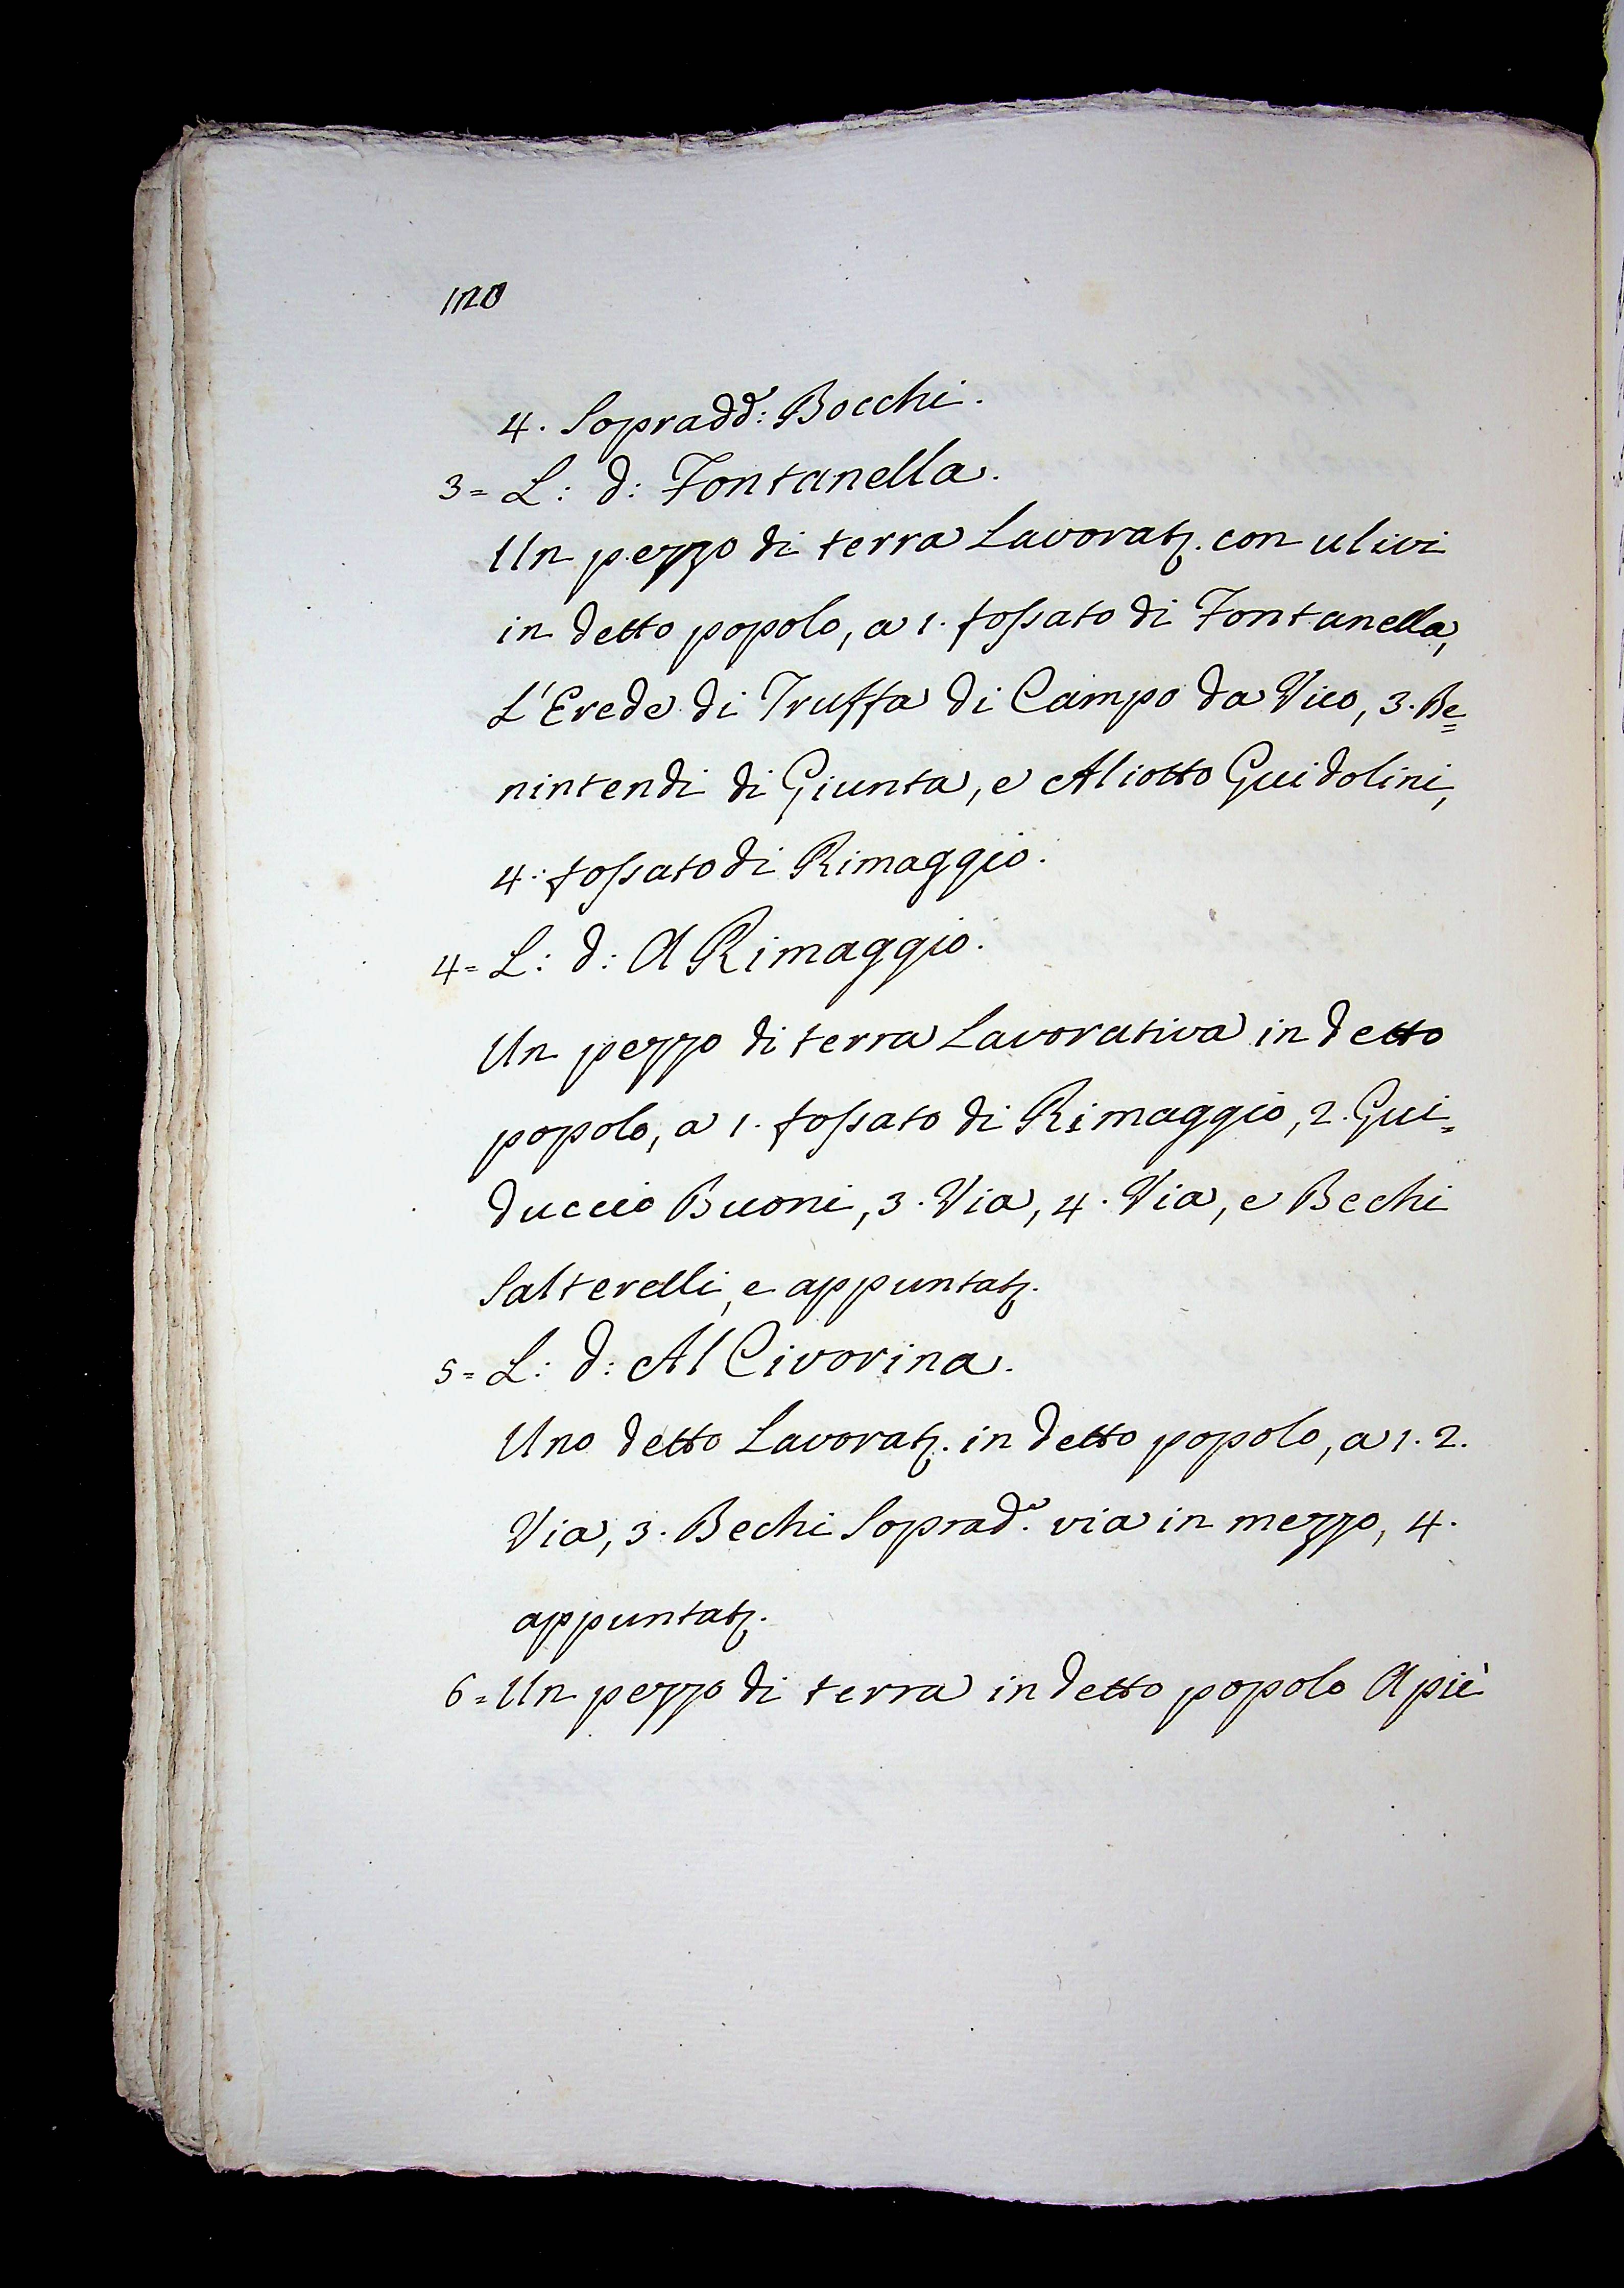 120
4. Sopradd.i: Bocchi.
3= L: d: Fontanella.
Un pezzo di terra Lavorat.a con ulivi
in detto popolo, a 1. fossato di Fontanella,
L'Erede di Truffa di Campo da Vico, 3. Be=
nintendi di Giunta, e Aliotto Guidolini,
4. fossato di Rimaggio.
4= L: d: A Rimaggio.
Un pezzo di terra Lavorativa in detto
popolo, a 1. fossato di Rimaggio, 2. Gui=
duccio Buoni, 3. Via, 4. Via, e Bechi
Salterelli, e appuntat.a
5= L: d: Al Civorina.
Uno detto Lavorat.a in detto popolo, a 1. 2.
Via, 3. Bechi Soprad.o via in mezzo, 4.
appuntat.a
6= Un pezzo di terra in detto popolo A piè